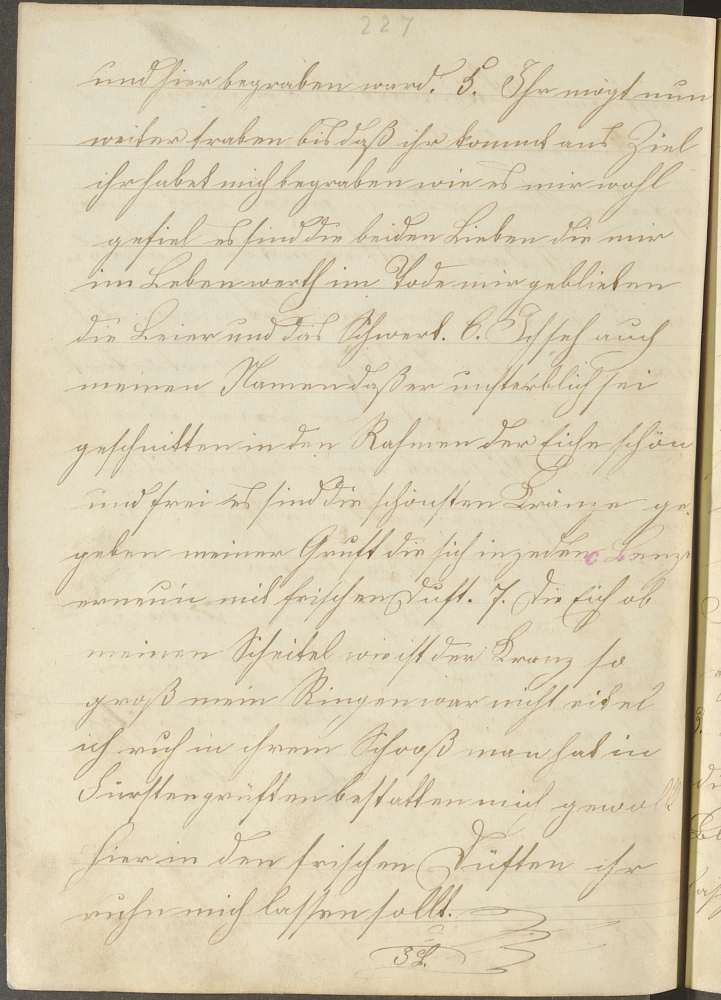 227
und hier begraben ward. 5. Ihr mögt nun
weiter traben bis daß ihr kommt ans Ziel
ihr habet mich begraben wie es mir wohl
gefiel es sind die beiden Lieben die mir
im Leben werth im Tode mir geblieben
die Leier und das Schwert. 6. Ich seh auch
meinen Namen daß er unsterblich sei
geschnitten in den Rahmen der Eiche schön
und frei es sind die schönsten Kränze ge
geben meiner Gruft die sich in jedem Lenze
erneuin mit frischen Duft. 7. Die Eich ob
meinen Scheitel wie ist der Kranz so
groß mein Ringen war nicht eitel
ich ruh in ihrem Schooß man hat in
Fürstengrüften bestatten mich gewollt
hier in den frischen Düften ihr
ruhn mich lassen sollt.